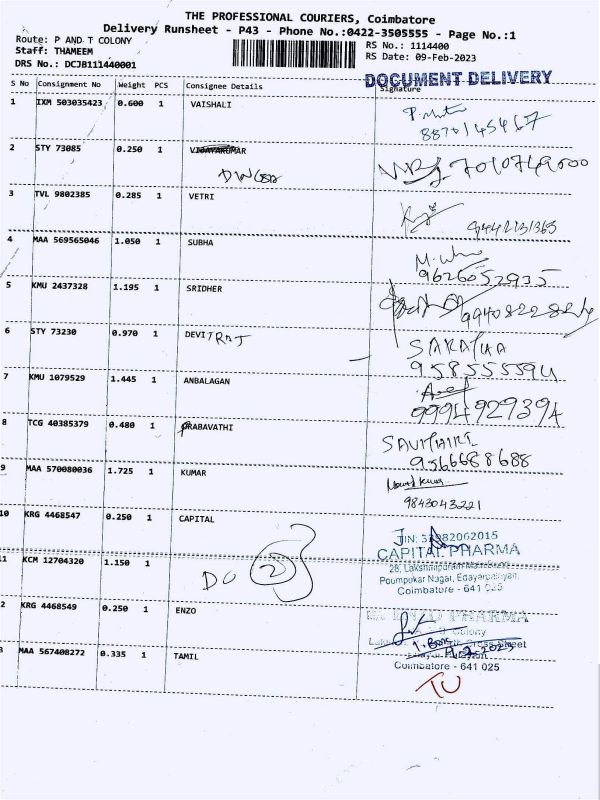 THE PROFESSIONAL COURIERS, Coimbatore
Delivery Runsheet - P43 - Phone No.:0422-3505555 - Page No.:1
Route: P AND T COLONY
RS No.: 1114400
Staff: THAMEEM
RS Date: 09-Feb-2023
DRS No.: DCJB111440001
DOCUMENT DELIVERY
S No Consignment No Weight PCS Consignee Details Signature
1 IXM 503035423 0.600 1 VAISHALI
8870145467
2 STY 73085 0.250 1 VIJAYAKUMAR
7010749500
3 TVL 9802385 0.285 1 VETRI
4 MAA 569565046 1.050 1 SUBHA
9626052935
5 KMU 2437328 1.195 1 SRIDHER
6 STY 73230 0.970 1 DEVI
7 KMU 1079529 1.445 1 ANBALAGAN
9994929394
8 TCG 40385379 0.480 1 PRABAVATHI
9566688688
9 MAA 570080036 1.725 1 KUMAR
9843043221
10 KRG 4468547 0.250 1 CAPITAL
CAPITAL PHARMA
Poumpukar Nagar, Edayarpalayam,
Coimbatore - 641 025
11 KCM 12704320 1.150 1
DO 2
2 KRG 4468549 0.250 1 ENZO
PHARMA
Colony
Street
3 MAA 567408272 0.335 1 TAMIL
Coimbatore - 641 025
TU